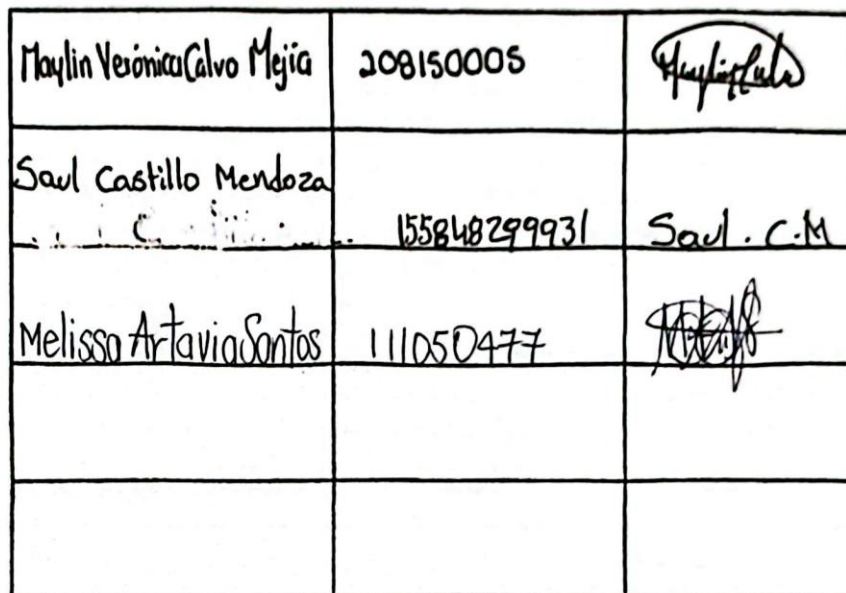 Maylin Verónica Calvo Mejía 208150005
Saul Castillo Mendoza
155848299931 Saul . C.M
Melissa Artavia Santos 111050477